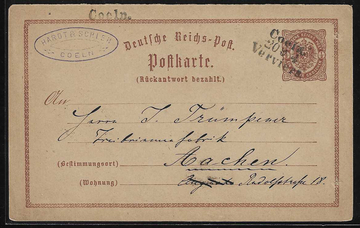 Coeln.
COELN
Deutsche Reichs-Post.
Postkarte.
(Rückantwort bezahlt.)
Coeln
Verviers
An
Herrn J. Trümpener
fabrik
(Bestimmungsort) Aachen.
(Wohnung) Rudolfstraße 18.